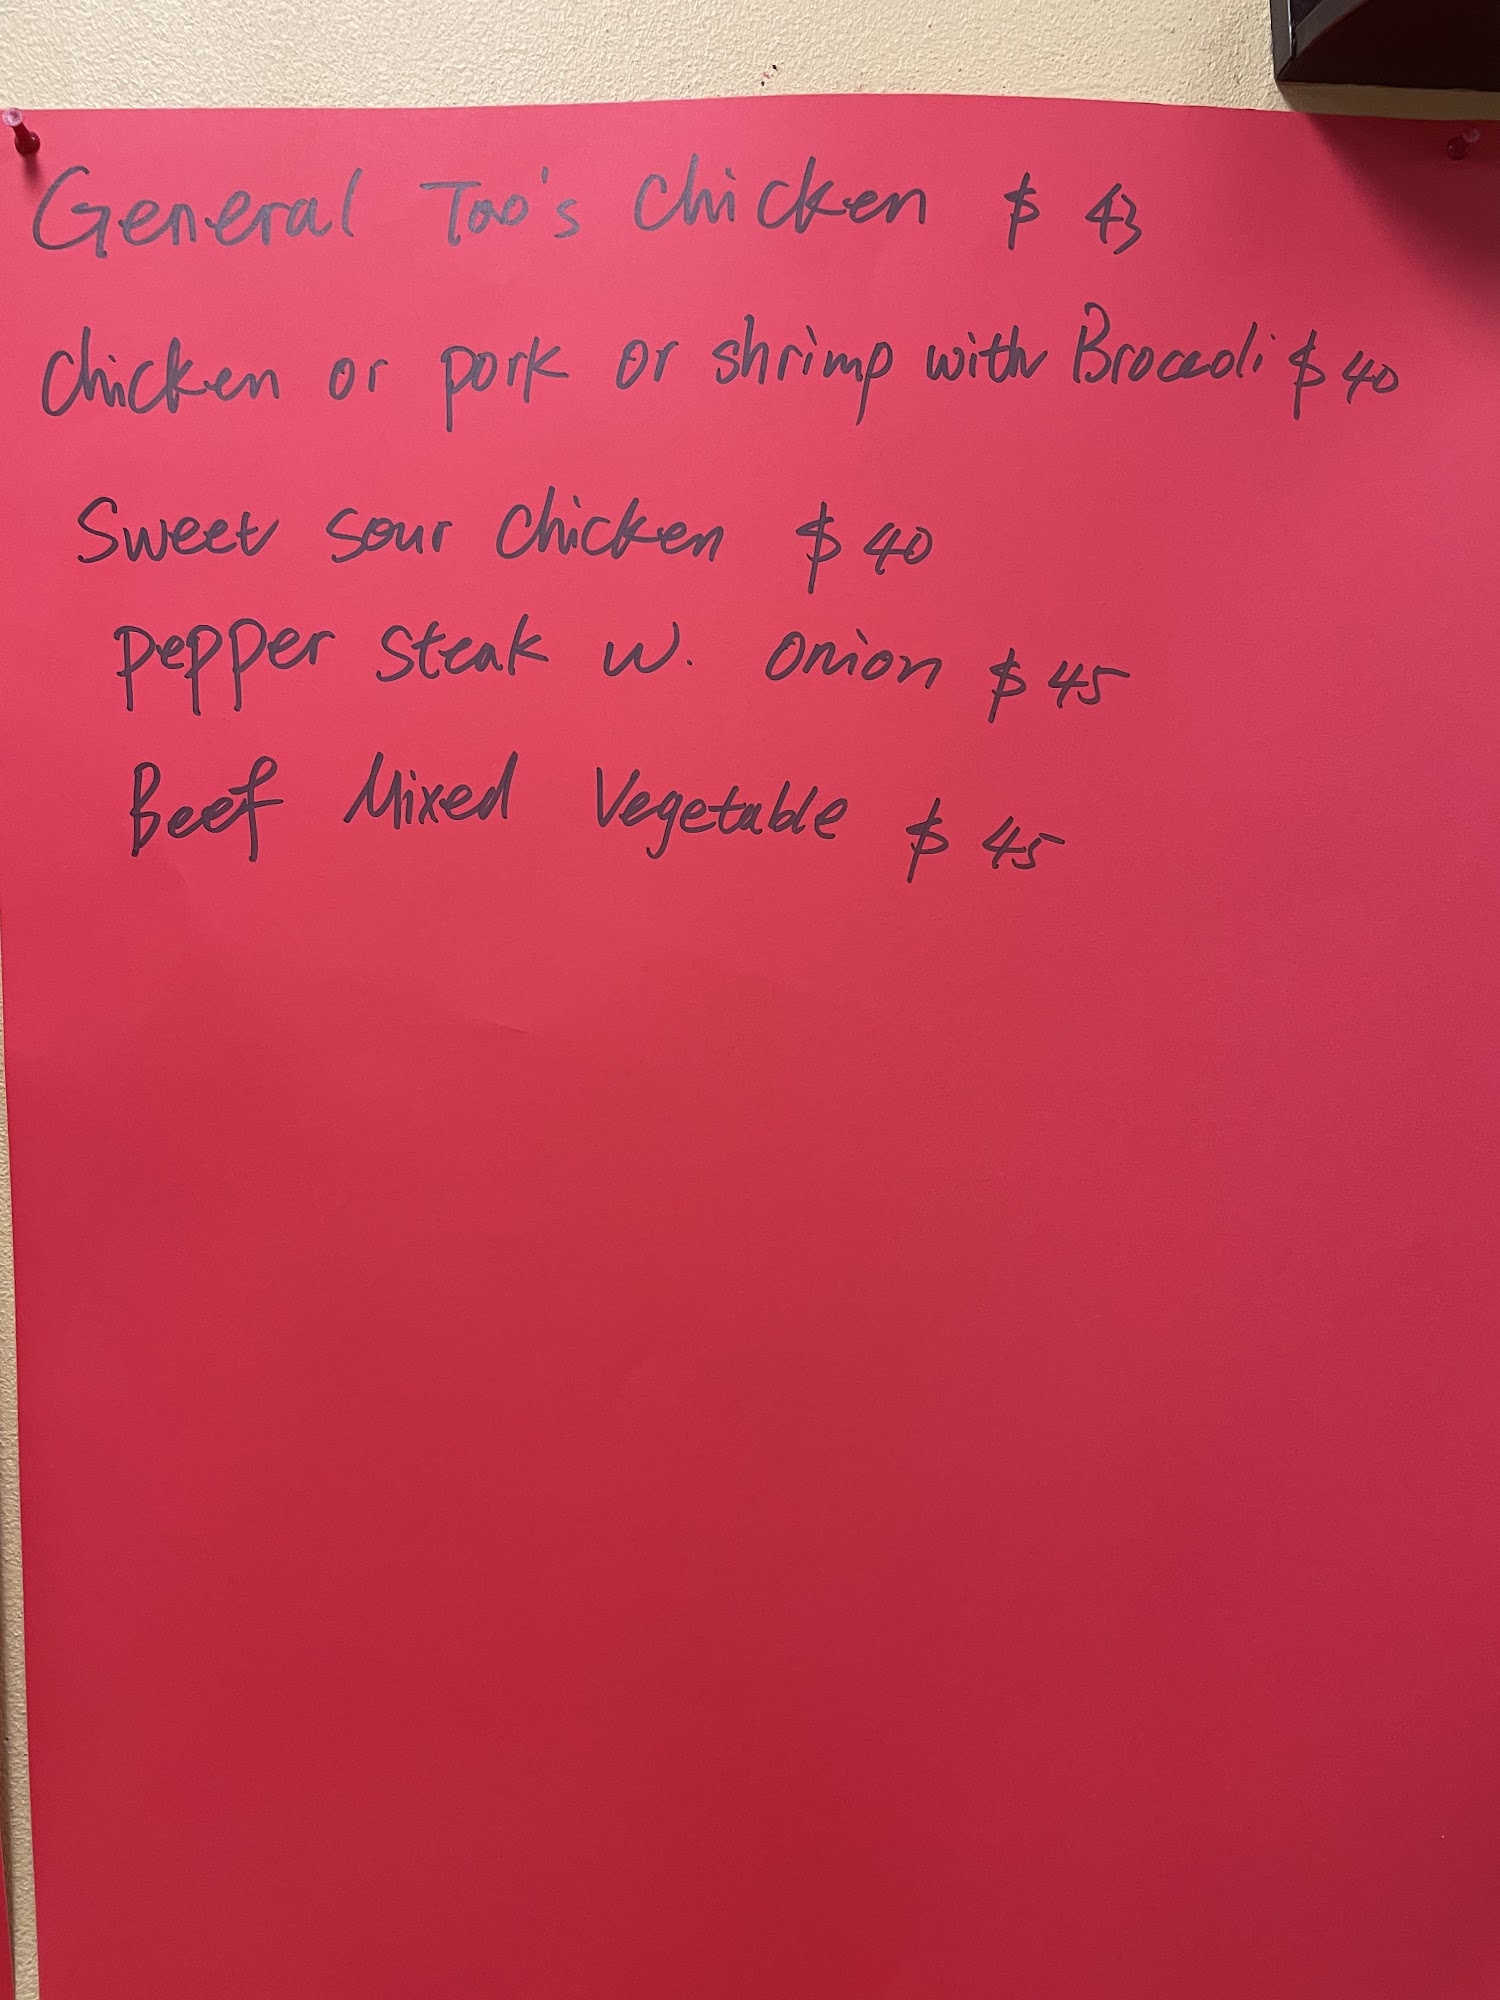 General Tao's chicken $ 43
chicken or pork or shrimp with Broccoli $ 40
Sweet sour chicken $ 40
pepper steak w. onion $ 45
Beef Mixed Vegetable $ 45